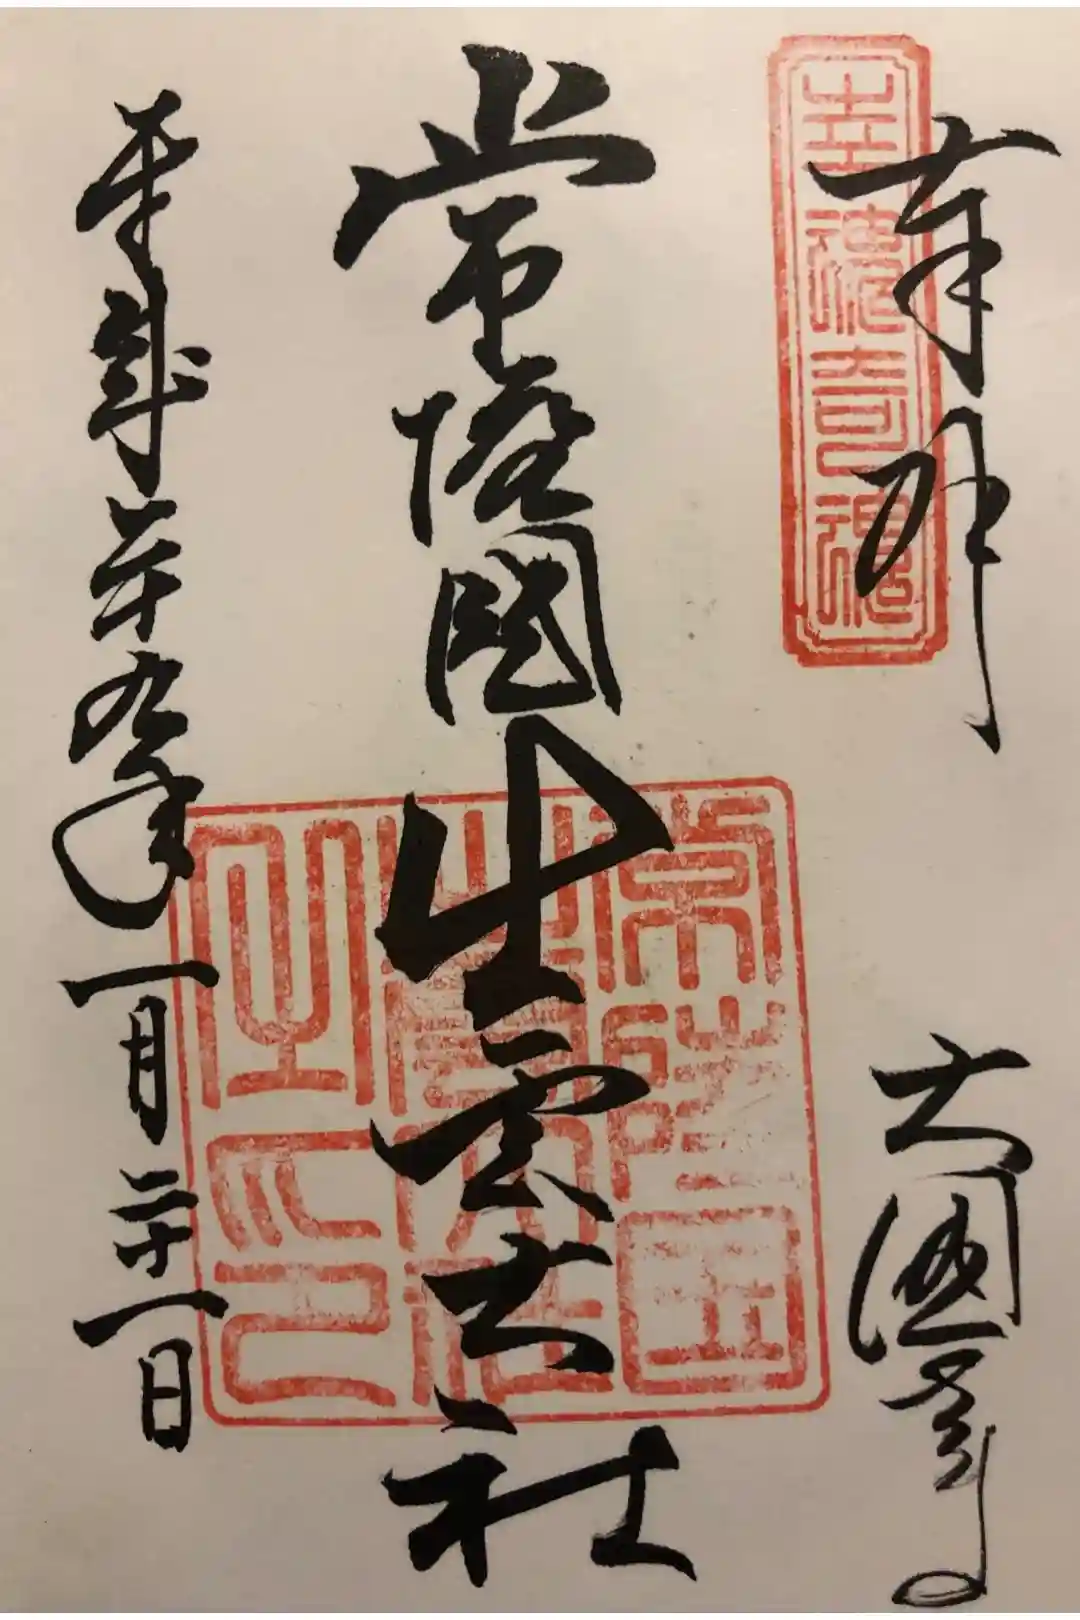 幸魂奇魂
奉拝
大國
常陸國出雲大社
常陸国出雲大社之印
平成廿九年一月二十一日